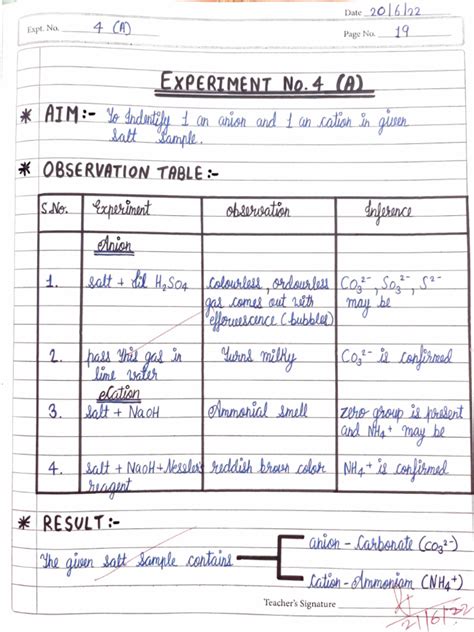 Date 20/6/22
Expt. No. 4 (A)
Page No. 19
EXPERIMENT No. 4 (A)
* AIM:- To Indentify 1 an anion and 1 an cation in given
salt sample.
* OBSERVATION TABLE:-
S.No. Experiment observation Inference
Anion
1. salt + dil H₂SO₄ colourless, ordourless CO₃²⁻, SO₃²⁻, S²⁻
gas comes out with may be
effourvescence (bubbles)
2. pass this gas in Turns milky CO₃²⁻ is confirmed
lime water
Cation
3. salt + NaOH Ammonial smell zero group is present
and NH₄⁺ may be
4. salt + NaOH + Nessler's reddish brown color NH₄⁺ is confirmed
reagent
* RESULT:-
anion - Carbonate (CO₃²⁻)
The given salt sample contains
Cation - Ammoniam (NH₄⁺)
Teacher's Signature
21/6/22